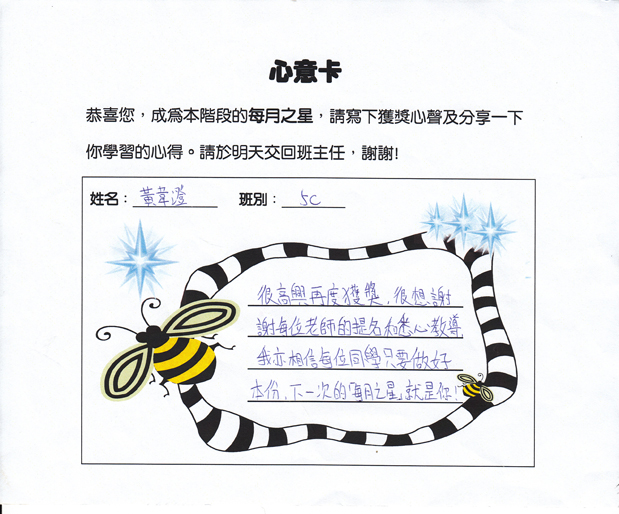 心意卡
恭喜您，成為本階段的每月之星，請寫下獲獎心聲及分享一下
你學習的心得。請於明天交回班主任，謝謝!
姓名：黃韋澄 班別：5C
很高興再度獲獎，很想謝
謝每位老師的提名和悉心教導
我亦相信每位同學只要做好
本份，下一次的「每月之星」就是你！